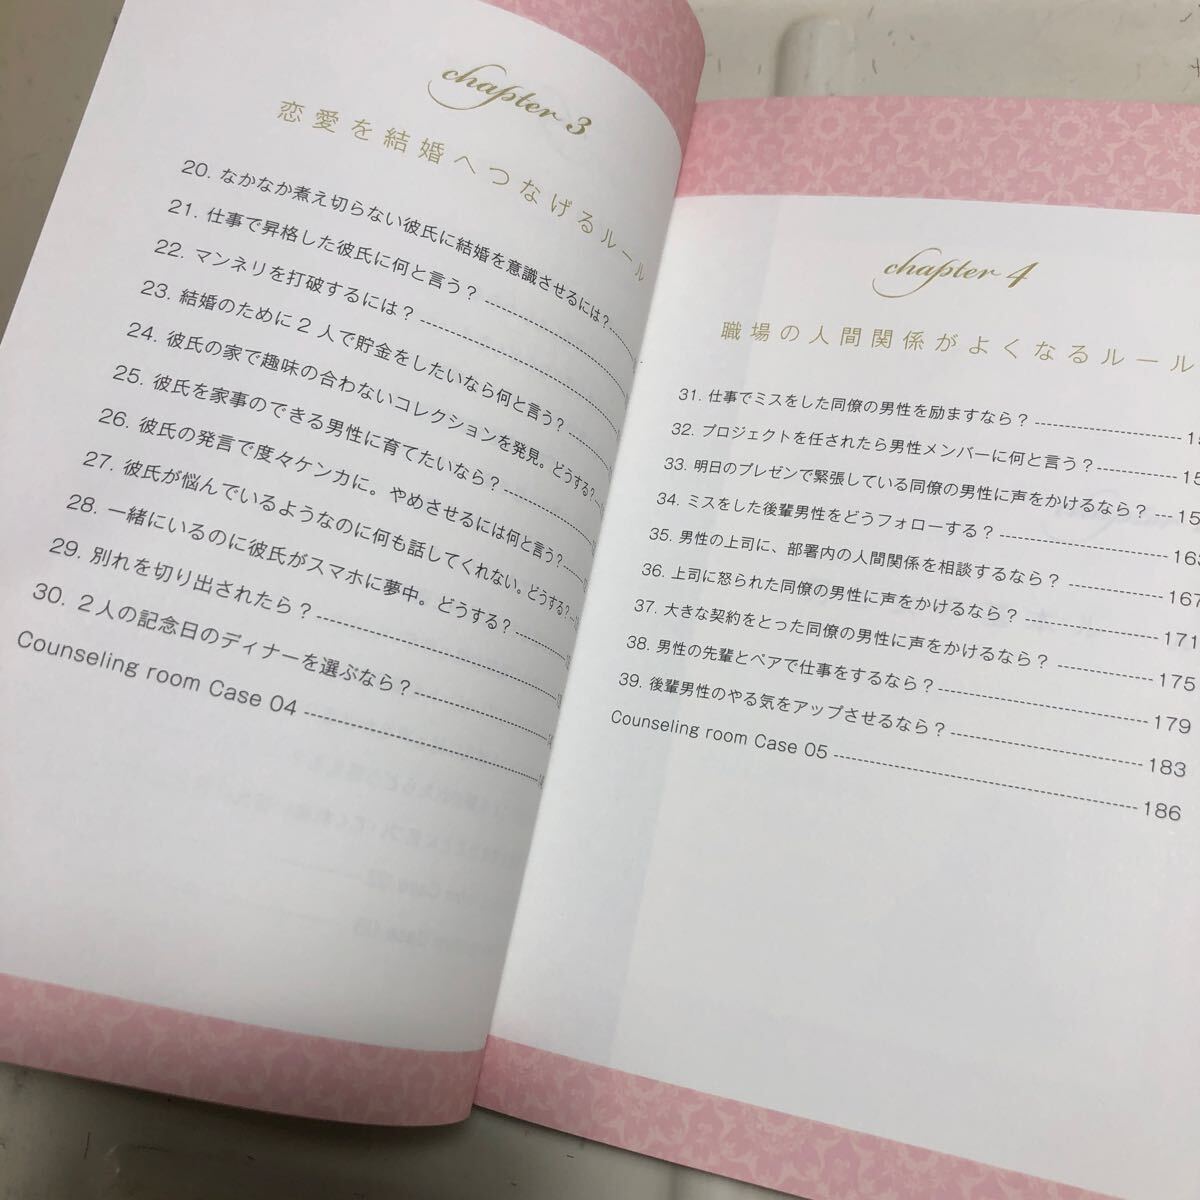 chapter 3
恋愛を結婚へつなげるルール
20. なかなか煮え切らない彼氏に結婚を意識させるには?
21. 仕事で昇格した彼氏に何と言う?
22. マンネリを打破するには?
23. 結婚のために2人で貯金をしたいなら何と言う?
24. 彼氏の家で趣味の合わないコレクションを発見。どうする?
25. 彼氏を家事のできる男性に育てたいなら?
26. 彼氏の発言で度々ケンカに。やめさせるには何と言う?
27. 彼氏が悩んでいるようなのに何も話してくれない。どうする?
28. 一緒にいるのに彼氏がスマホに夢中。どうする?
29. 別れを切り出されたら?
30. 2人の記念日のディナーを選ぶなら?
Counseling room Case 04
chapter 4
職場の人間関係がよくなるルール
31. 仕事でミスをした同僚の男性を励ますなら?
32. プロジェクトを任されたら男性メンバーに何と言う?
33. 明日のプレゼンで緊張している同僚の男性に声をかけるなら?
34. ミスをした後輩男性をどうフォローする? 163
35. 男性の上司に、部署内の人間関係を相談するなら? 167
36. 上司に怒られた同僚の男性に声をかけるなら? 171
37. 大きな契約をとった同僚の男性に声をかけるなら? 175
38. 男性の先輩とペアで仕事をするなら? 179
39. 後輩男性のやる気をアップさせるなら? 183
Counseling room Case 05 186